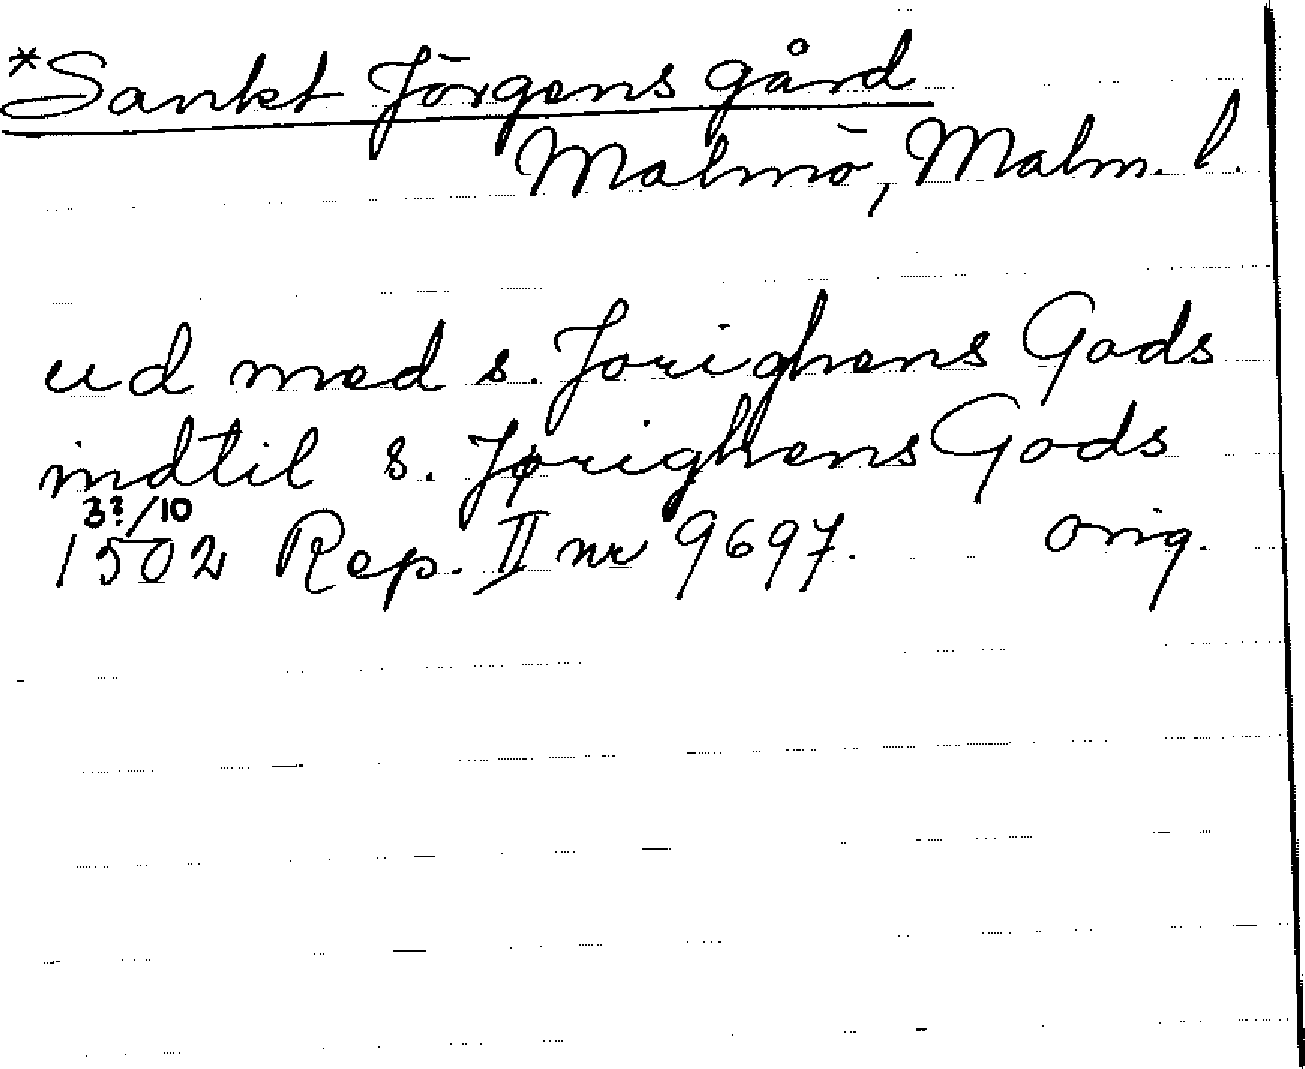 *Sankt Jörgens gård
Malmö, Malm. l.
ud med s. Jorighens Gods
indtil s. Jørighens Gods
3?/10
1502 Rep. II nr 9697. orig.